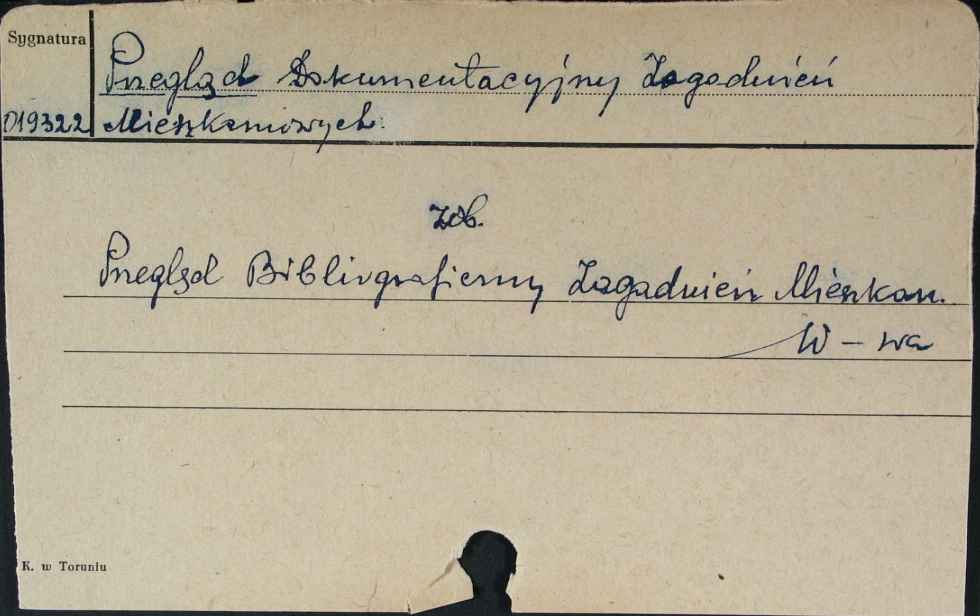 Sygnatura
Przegląd Dokumentacyjny Zagadnień
019322 Mieszkaniowych
zob.
Przegląd Bibliograficzny Zagadnień Mieszkan.
W-wa
K. w Toruniu